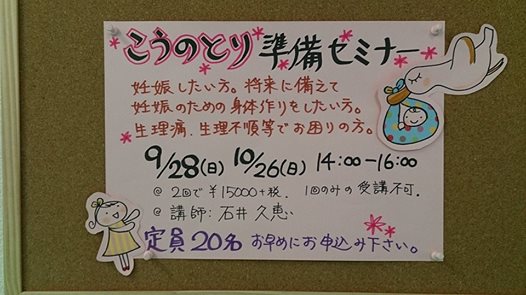 こうのとり 準備セミナー
妊娠したい方。将来に備えて
妊娠のための身体作りをしたい方。
生理痛、生理不順等でお困りの方。
9/28(日) 10/26(日) 14:00-16:00
@ 2回で ¥15000+税. 1回のみの受講不可.
@ 講師: 石井 久恵
定員20名 お早めにお申込み下さい。